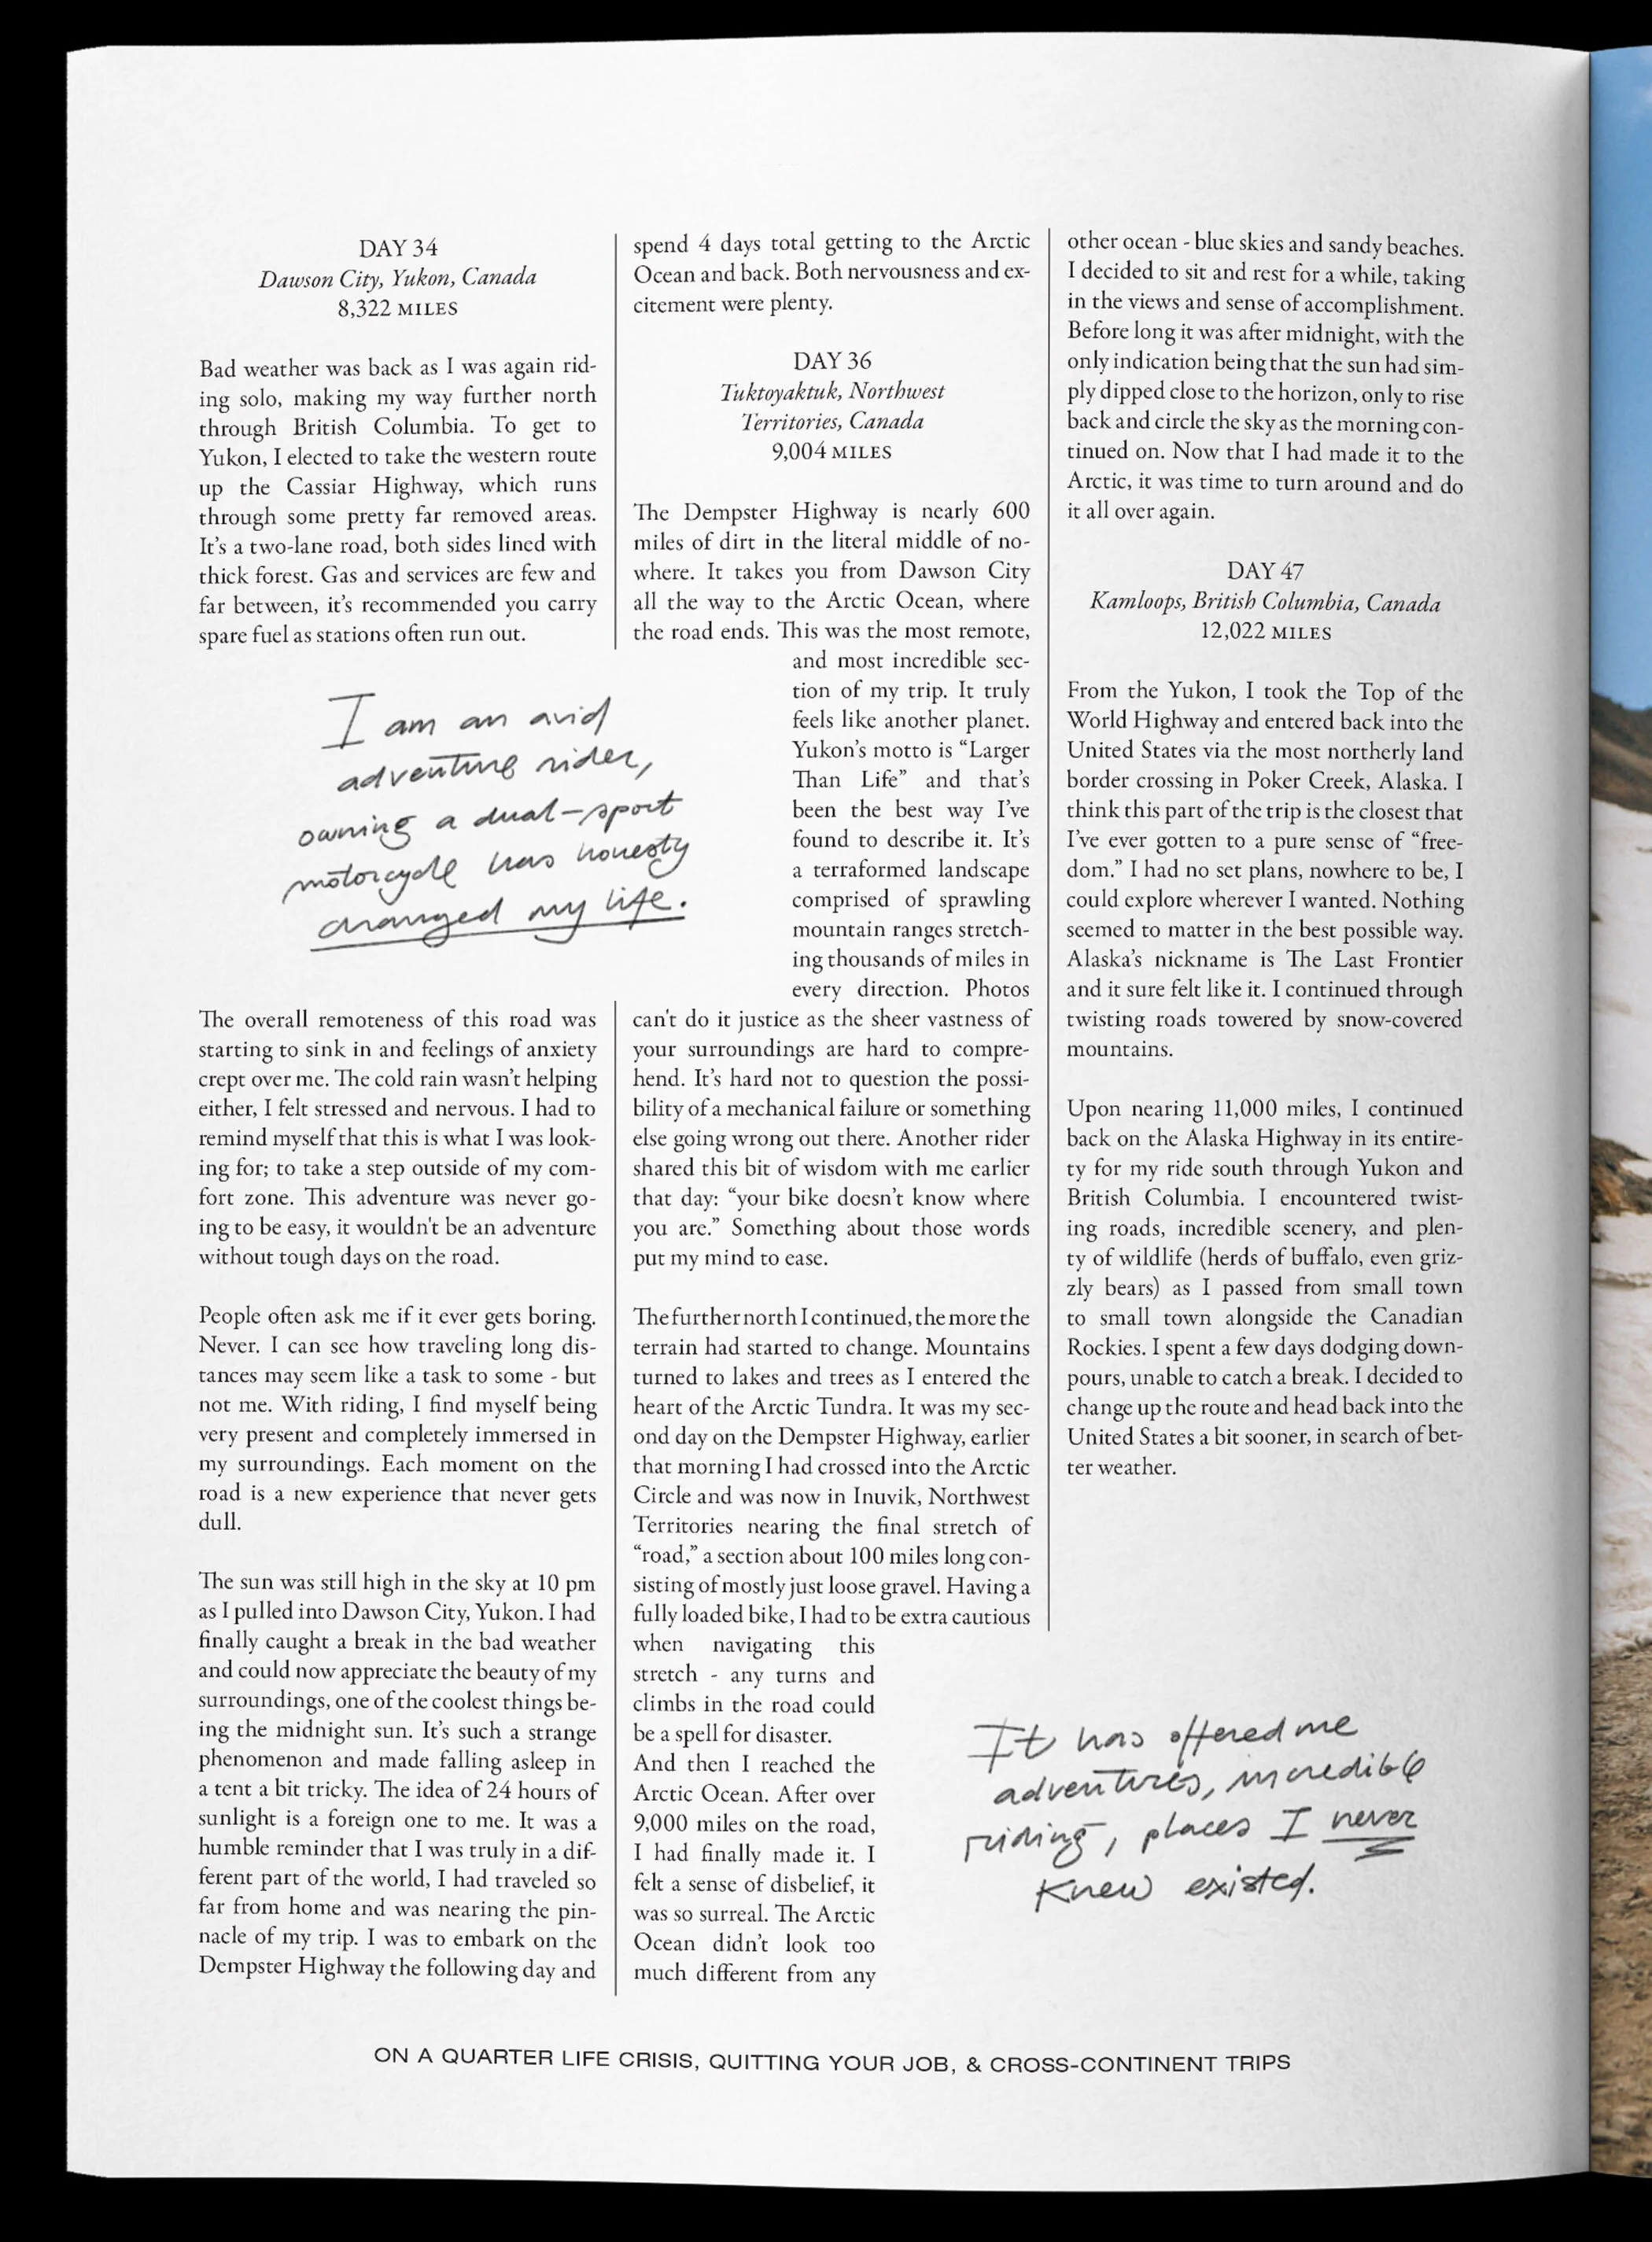 DAY 34
Dawson City, Yukon, Canada
8,322 MILES
Bad weather was back as I was again rid-
ing solo, making my way further north
through British Columbia. To get to
Yukon, I elected to take the western route
up the Cassiar Highway, which runs
through some pretty far removed areas.
It's a two-lane road, both sides lined with
thick forest. Gas and services are few and
far between, it's recommended you carry
spare fuel as stations often run out.
I am an avid
adventure rider,
owning a dual-sport
motorcycle has honesty
changed my life.
The overall remoteness of this road was
starting to sink in and feelings of anxiety
crept over me. The cold rain wasn't helping
either, I felt stressed and nervous. I had to
remind myself that this is what I was look-
ing for; to take a step outside of my com-
fort zone. This adventure was never go-
ing to be easy, it wouldn't be an adventure
without tough days on the road.
People often ask me if it ever gets boring.
Never. I can see how traveling long dis-
tances may seem like a task to some - but
not me. With riding, I find myself being
very present and completely immersed in
my surroundings. Each moment on the
road is a new experience that never gets
dull.
The sun was still high in the sky at 10 pm
as I pulled into Dawson City, Yukon. I had
finally caught a break in the bad weather
and could now appreciate the beauty of my
surroundings, one of the coolest things be-
ing the midnight sun. It's such a strange
phenomenon and made falling asleep in
a tent a bit tricky. The idea of 24 hours of
sunlight is a foreign one to me. It was a
humble reminder that I was truly in a dif-
ferent part of the world, I had traveled so
far from home and was nearing the pin-
nacle of my trip. I was to embark on the
Dempster Highway the following day and
spend 4 days total getting to the Arctic
Ocean and back. Both nervousness and ex-
citement were plenty.
DAY 36
Tuktoyaktuk, Northwest
Territories, Canada
9,004 MILES
The Dempster Highway is nearly 600
miles of dirt in the literal middle of no-
where. It takes you from Dawson City
all the way to the Arctic Ocean, where
the road ends. This was the most remote,
and most incredible sec-
tion of my trip. It truly
feels like another planet.
Yukon's motto is “Larger
Than Life” and that's
been the best way I've
found to describe it. It's
a terraformed landscape
comprised of sprawling
mountain ranges stretch-
ing thousands of miles in
every direction. Photos
can't do it justice as the sheer vastness of
your surroundings are hard to compre-
hend. It's hard not to question the possi-
bility of a mechanical failure or something
else going wrong out there. Another rider
shared this bit of wisdom with me earlier
that day: “your bike doesn't know where
you are.” Something about those words
put my mind to ease.
The further north I continued, the more the
terrain had started to change. Mountains
turned to lakes and trees as I entered the
heart of the Arctic Tundra. It was my sec-
ond day on the Dempster Highway, earlier
that morning I had crossed into the Arctic
Circle and was now in Inuvik, Northwest
Territories nearing the final stretch of
“road,” a section about 100 miles long con-
sisting of mostly just loose gravel. Having a
fully loaded bike, I had to be extra cautious
when navigating this
stretch - any turns and
climbs in the road could
be a spell for disaster.
And then I reached the
Arctic Ocean. After over
9,000 miles on the road,
I had finally made it. I
felt a sense of disbelief, it
was so surreal. The Arctic
Ocean didn't look too
much different from any
other ocean - blue skies and sandy beaches.
I decided to sit and rest for a while, taking
in the views and sense of accomplishment.
Before long it was after midnight, with the
only indication being that the sun had sim-
ply dipped close to the horizon, only to rise
back and circle the sky as the morning con-
tinued on. Now that I had made it to the
Arctic, it was time to turn around and do
it all over again.
DAY 47
Kamloops, British Columbia, Canada
12,022 MILES
From the Yukon, I took the Top of the
World Highway and entered back into the
United States via the most northerly land
border crossing in Poker Creek, Alaska. I
think this part of the trip is the closest that
I've ever gotten to a pure sense of “free-
dom.” I had no set plans, nowhere to be, I
could explore wherever I wanted. Nothing
seemed to matter in the best possible way.
Alaska's nickname is The Last Frontier
and it sure felt like it. I continued through
twisting roads towered by snow-covered
mountains.
Upon nearing 11,000 miles, I continued
back on the Alaska Highway in its entire-
ty for my ride south through Yukon and
British Columbia. I encountered twist-
ing roads, incredible scenery, and plen-
ty of wildlife (herds of buffalo, even griz-
zly bears) as I passed from small town
to small town alongside the Canadian
Rockies. I spent a few days dodging down-
pours, unable to catch a break. I decided to
change up the route and head back into the
United States a bit sooner, in search of bet-
ter weather.
It has offered me
adventures, incredible
riding, places I never
knew existed.
ON A QUARTER LIFE CRISIS, QUITTING YOUR JOB, & CROSS-CONTINENT TRIPS